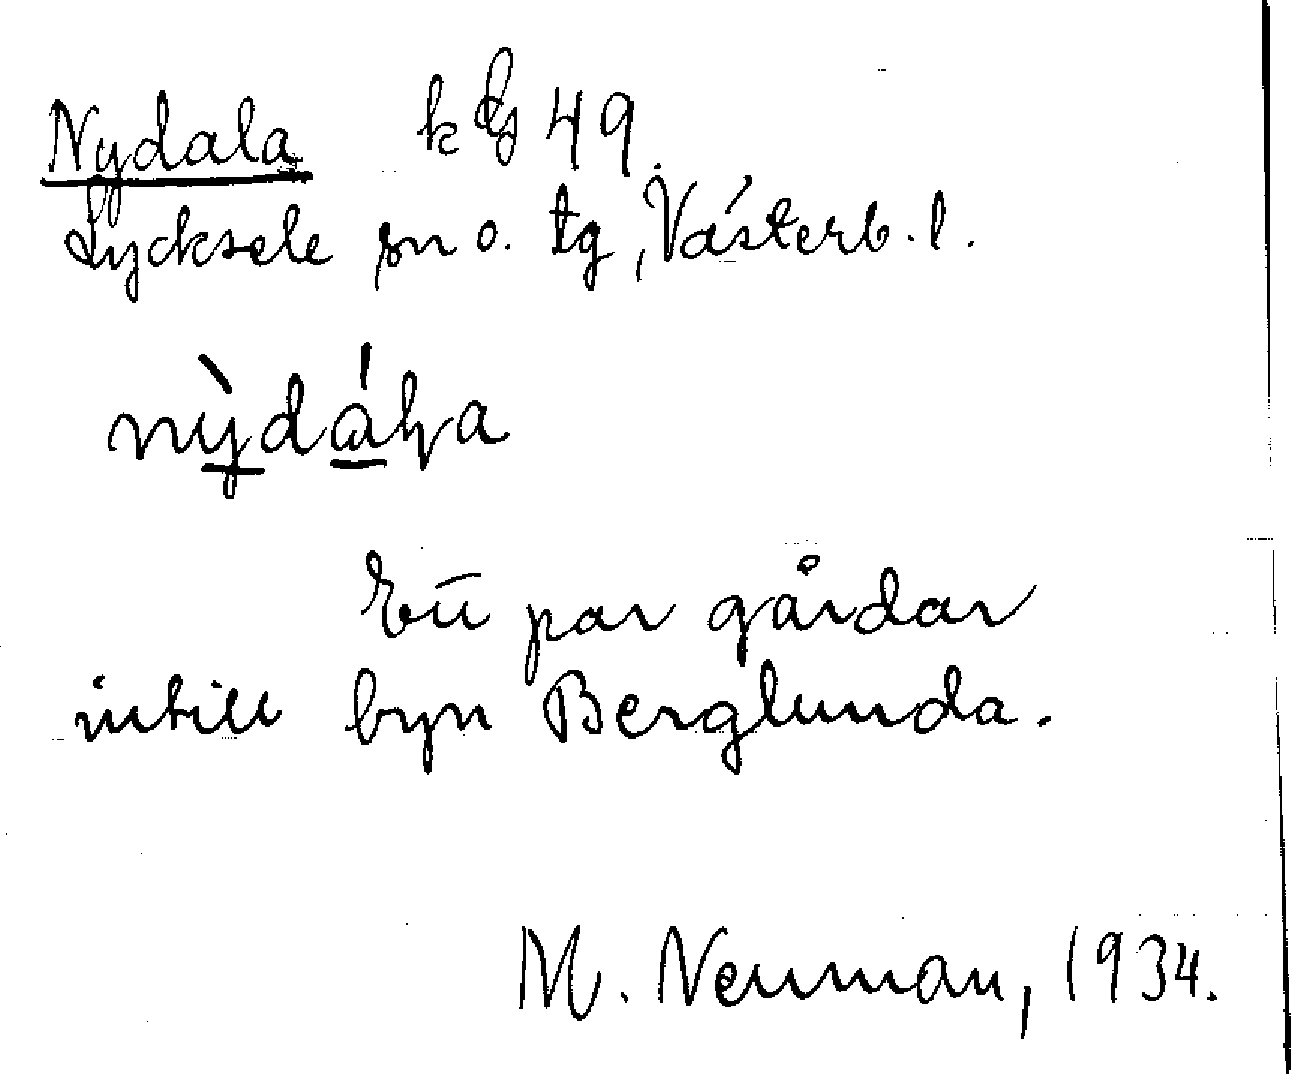 Nydala kbl 49.
Lycksele sn o. tg, Västerb. l.
nỳdáḷa
Ett par gårdar
intill byn Berglunda.
M. Neuman, 1934.